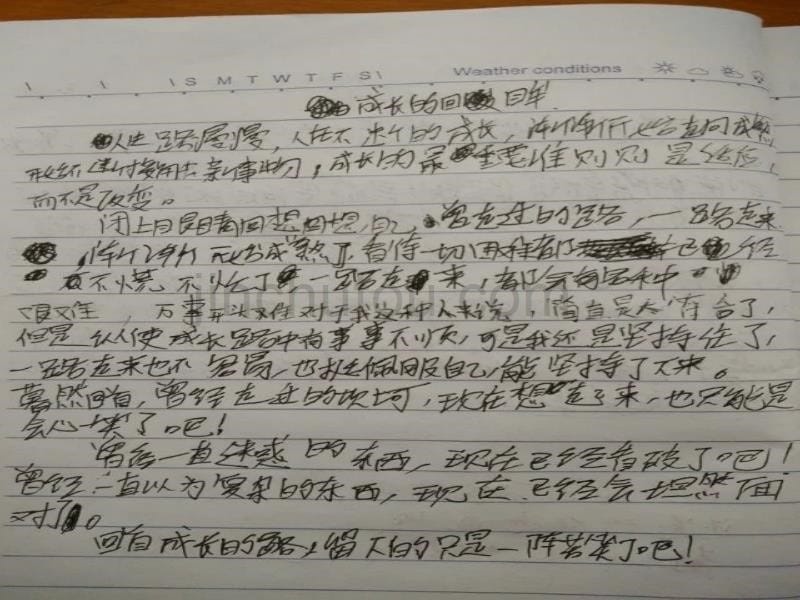 S M T W T F S Weather conditions
成长的回 目羊
人生路漫漫,人在不 的成长,渐渐 始走向成熟
开始 事物,成长的最 重要准则则是经历,
而不是改变。
闭上目眼睛回想回想,自己 曾走过的路,一路走来
渐渐 开始成熟了 看待一切困难都 已 经
不慌 不忙了 一路走 来,都会有 中
很难,万事开头难对于我这种人来说,简直是太 符合了,
但是 纵使成长路中有事事不顺,可是我还是坚持住了,
一路走来也不容易,也挺佩服自己,能坚持了下来。
蓦然回首,曾经走过的坎坷,现在想 起了来,也只能是
会心一笑了吧!
曾经一直迷惑 的 东西,现在已经看破了吧!
曾经一直以为复杂的东西,现 在 已经会坦然面
对了 。
回首成长的路上留下的只是一阵苦笑了吧!